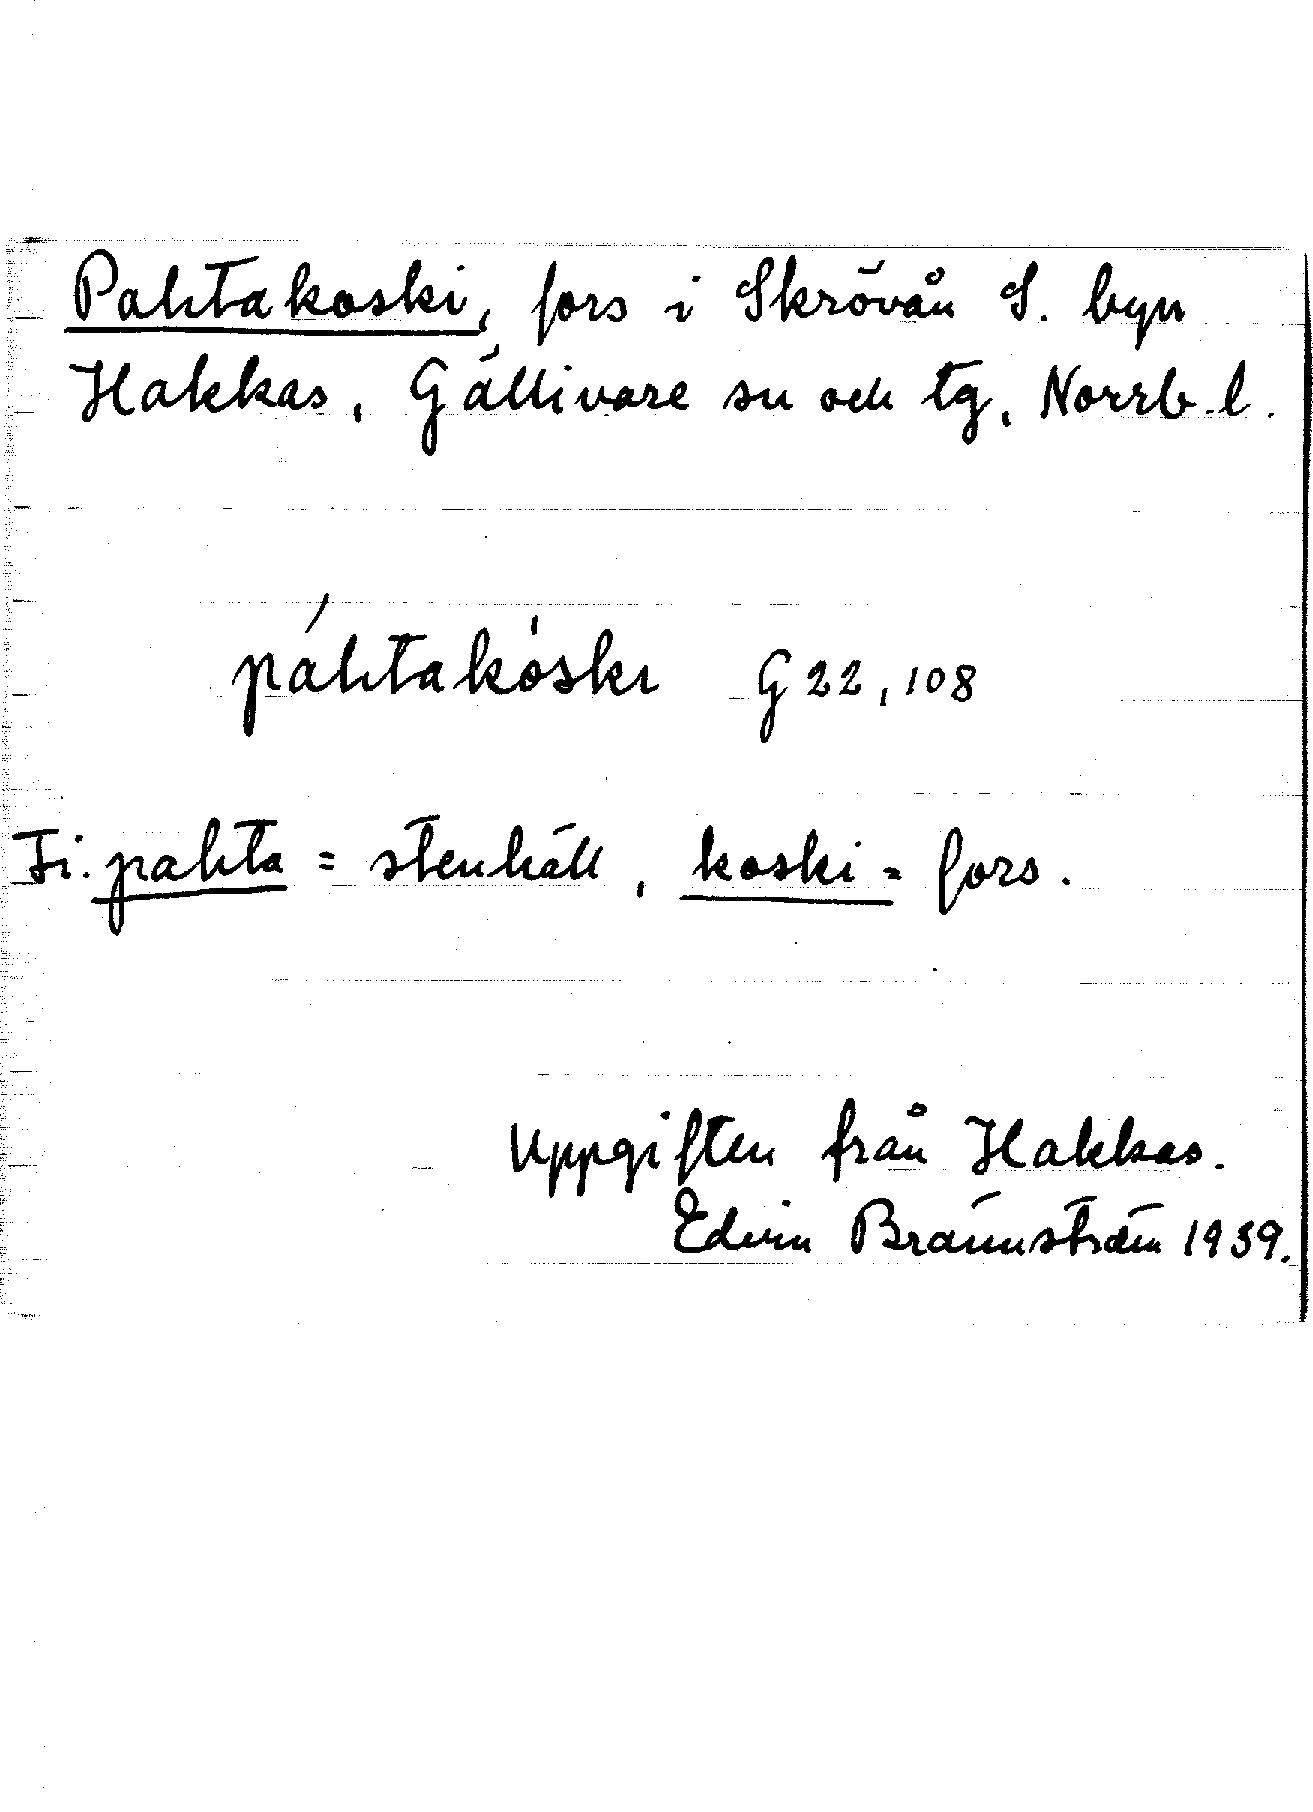 Pahtakoski, fors i Skrövån S. byn
Hakkas, Gällivare sn och tg, Norrb. l.
páhtakòski G 22, 108
Fi. pahta = stenhäll, koski = fors.
Uppgiften från Hakkas.
Edvin Brännström 1939.